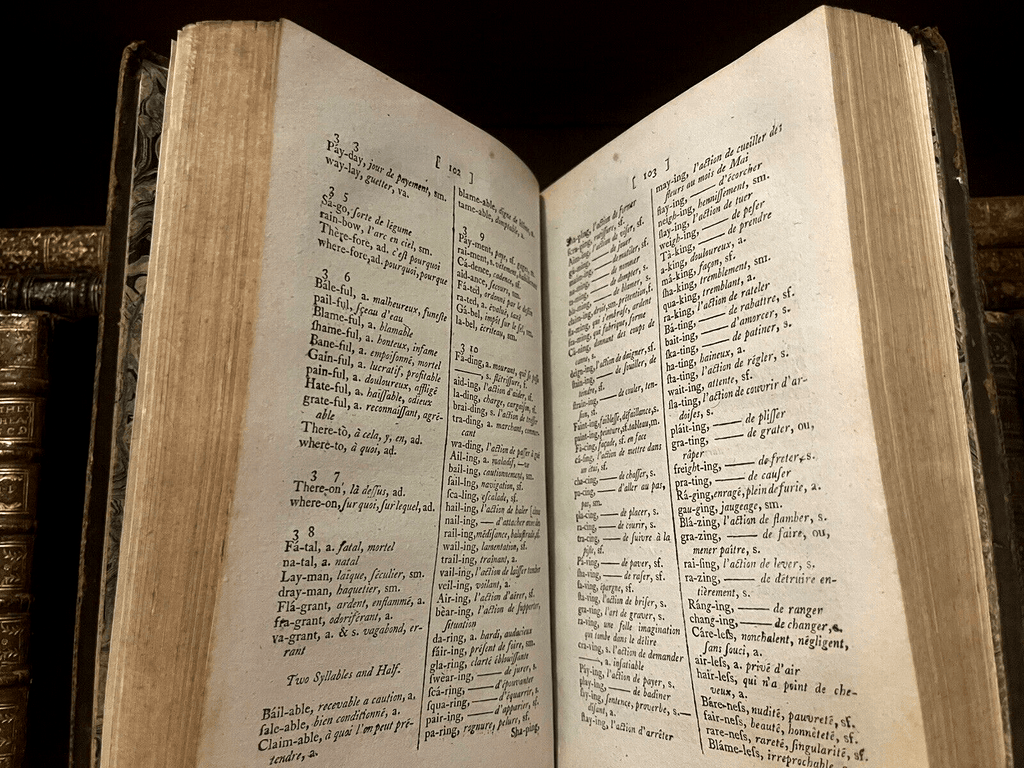 [ 102 ]
3 3
Pāy-day, jour de payement, sm.
way-lay, guetter, va.
3 5
Sā-go, ſorte de légume
rain-bow, l'arc en ciel, sm.
Thēre-fore, ad. c'eſt pourquoi
where-fore, ad. pourquoi, pourque
3 6
Bāle-ful, a. malheureux, funeſte
pail-ful, ſçeau d'eau
Blame-ful, a. blamable
ſhame-ful, a. honteux, infame
Bane-ful, a. empoiſonné, mortel
Gain-ful, a. lucratif, profitable
pain-ful, a. douloureux, affligé
Hate-ful, a. haïſſable, odieux
grate-ful, a. reconnaiſſant, agré-
able
There-tò, à cela, y, en, ad.
where-to, à quoi, ad.
3 7
There-on, là deſſus, ad.
where-on, ſur quoi, ſur lequel, ad.
3 8
Fā-tal, a. fatal, mortel
na-tal, a. natal
Lay-man, laïque, ſéculier, sm.
dray-man, haquetier, sm.
Flā-grant, ardent, enflammé, a.
fra-grant, odoriférant, a.
va-grant, a. & s. vagabond, er-
rant
Two Syllables and Half.
Báil-able, recevable a caution, a.
ſale-able, bien conditionné, a.
Claim-able, à quoi l'on peut pré-
tendre, a.
blame-able, digne de blâme, a.
tame-able, domptable, a.
3 9
Pāy-ment, paye, sf.
rai-ment, s. vêtement,
Cā-dence, cadence, sf.
aid-ance, ſecours, sm.
Fā-ted, ordonné par le deſtin
ra-ted, a. évalué, taxé
Gā-bel, impôt ſur le ſel, sm.
la-bel, écriteau, sm.
3 10
Fā-ding, a. mourant, qui ſe paſſe
——, s. flétriſſure, f.
aid-ing, l'action d'aider, sf.
la-ding, charge, cargaiſon, sf.
brai-ding, s. l'action de treſſer
tra-ding, a. marchant, commer-
cant
wa-ding, l'action de paſſer à gué
Ail-ing, a. maladif,
bail-ing, cautionnement, sm.
ſail-ing, navigation, sf.
ſca-ling, eſcalade, sf.
hail-ing, l'action de haler
nail-ing, —— d'attacher avec des
rail-ing, médiſance, baluſtrade, sf.
wail-ing, lamentation, sf.
trail-ing, traînant, a.
vail-ing, l'action de laiſſer tomber
veil-ing, voilant, a.
Air-ing, l'action d'aërer, sf.
bèar-ing, l'action de ſupporter,
ſituation
da-ring, a. hardi, audacieux
fáir-ing, préſent de foire, sm.
gla-ring, clarté éblouiſſante
ſwear-ing, —— de jurer, s.
ſcá-ring, —— d'épouvanter
ſqua-ring, —— d'équarrir, s.
pair-ing, —— d'apparier, sf.
pa-ring, rognure, pelure, sf.
Sha-ping,
[ 103 ]
l'action de former
—— de jouer
—— de nommer
—— de dompter, s.
—— de blamer, s.
qui s'embraſe, ardent
qui fabrique, forme
donnant des coups de
l'action de daigner, sf.
—— de ſouiller, de
teindre, sf.
—— de couler, ten-
ſion, sf.
Faint-ing, faibleſſe, défaillance, s.
paint-ing, peinture, sf. tableau, m.
Fā-cing, façade, sf. en face
ca-ſing, l'action de mettre dans
un étui, sf.
cha-cing, —— de chaſſer, s.
pa-cing, —— d'aller au pas,
pas, sm.
pla-cing, —— de placer, s.
ra-cing, —— de courir, s.
tra-cing, —— de ſuivre à la
piſte, sf.
Pā-ving, —— de paver, sf.
ſha-ving, —— de raſer, sf.
ſa-ving, épargne, sf.
ſta-ving, l'action de briſer, s.
gra-ving, l'art de graver, s.
ra-ving, une folle imagination
qui tombe dans le délire
cra-ving, s. l'action de demander
——, a. inſatiable
Pāy-ing, l'action de payer, s.
play-ing, —— de badiner
ſay-ing, ſentence, proverbe, s.—
diſant, a.
ſtay-ing, l'action d'arrêter
may-ing, l'action de cueiller des
fleurs au mois de Mai
flay-ing, —— d'écorcher
neigh-ing, henniſſement, sm.
ſlay-ing, l'action de tuer
weigh-ing, —— de peſer
Tā-king, —— de prendre
a-king, douloureux, a.
má-king, façon, sf.
ſha-king, tremblement, sm.
qua-king, tremblant, a.
ra-king, l'action de rateler
Bā-ting, —— de rabattre, sf.
bait-ing, —— d'amorcer, s.
ſka-ting, —— de patiner, s.
ha-ting, haineux, a.
ſta-ting, l'action de régler, s.
wait-ing, attente, sf.
ſla-ting, l'action de couvrir d'ar-
doiſes, s.
pláit-ing, —— de pliſſer
gra-ting, —— de grater, ou,
râper
freight-ing, —— de freter, s.
pra-ting, —— de cauſer
Rá-ging, enragé, plein de furie, a.
gau-ging, jaugeage, sm.
Blā-zing, l'action de flamber, s.
gra-zing, —— de faire, ou,
mener paitre, s.
rai-ſing, l'action de lever, s.
ra-zing, —— de détruire en-
tièrement, s.
Ráng-ing, —— de ranger
chang-ing, —— de changer, s.
Cáre-leſs, nonchalent, négligent,
ſans ſouci, a.
air-leſs, a. privé d'air
hair-leſs, qui n'a point de che-
veux, a.
Báre-neſs, nudité, pauvreté, sf.
fair-neſs, beauté, honnêteté, sf.
rare-neſs, rareté, ſingularité, sf.
Bláme-leſs, irreprochable,